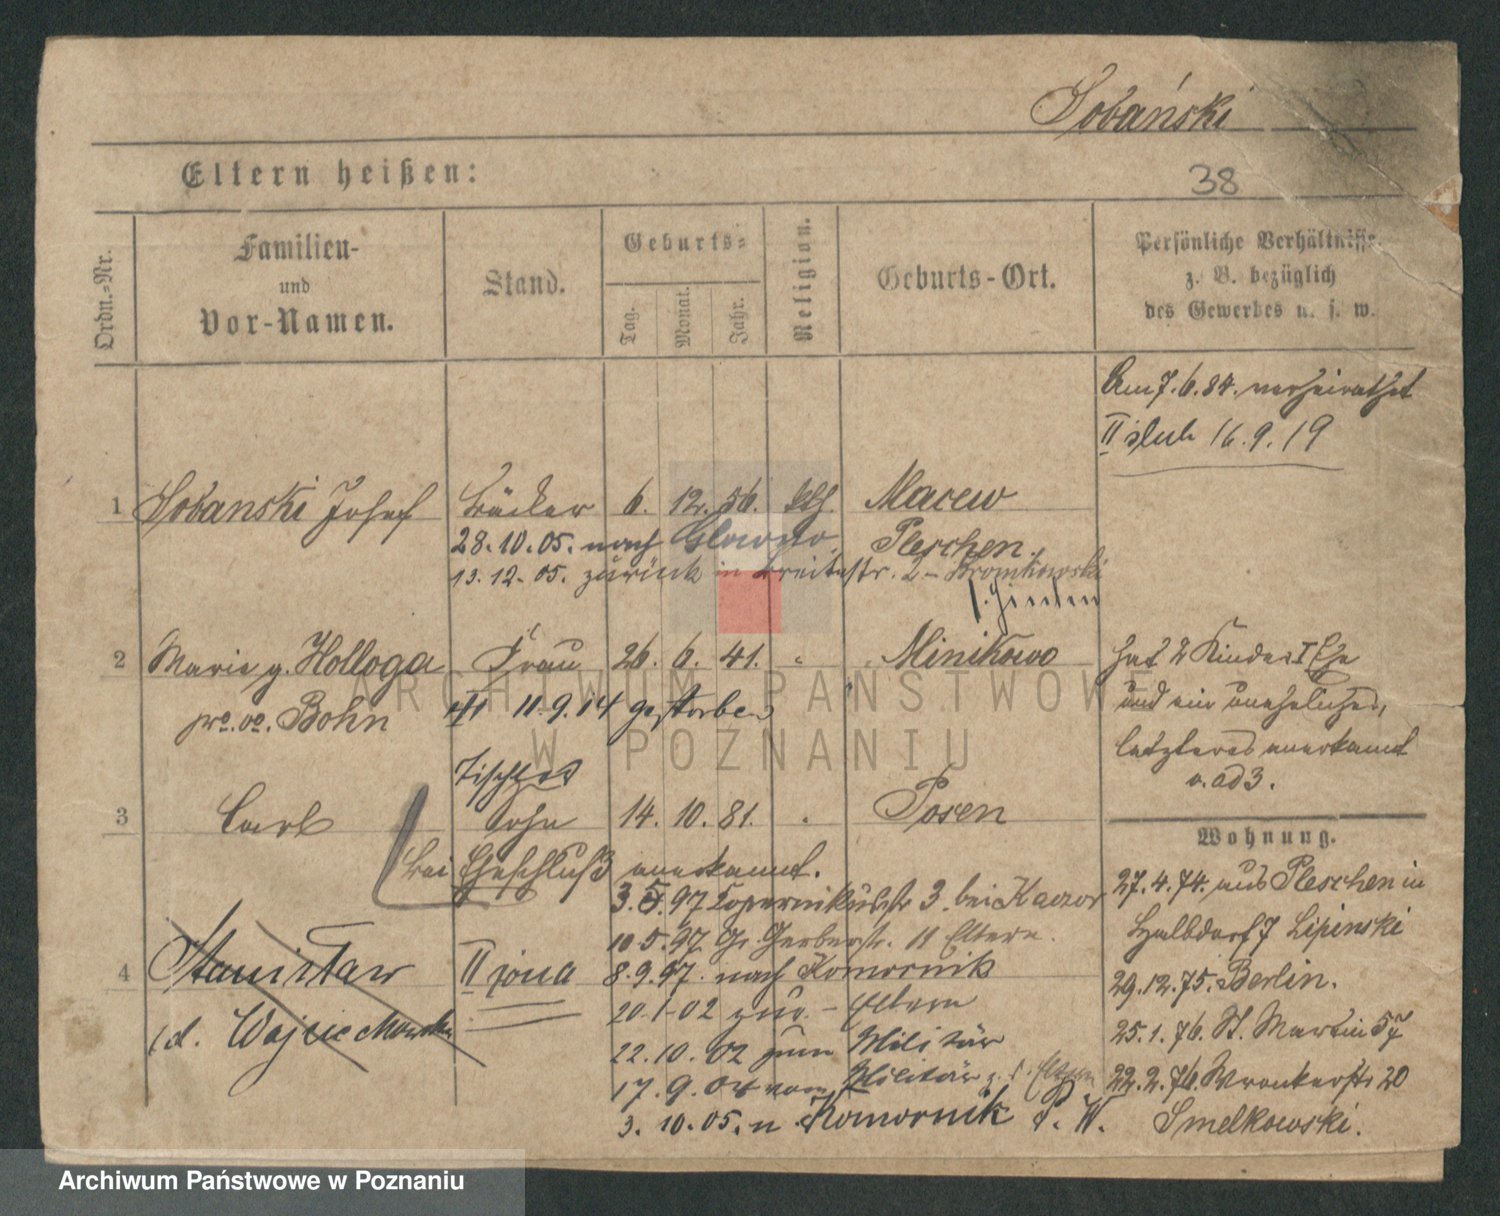 Sobański
Eltern heißen:
38
Ordn.-Nr.
Familien-
und
Vor-Namen.
Stand.
Geburts-
Tag.
Monat.
Jahr.
Religion.
Geburts-Ort.
Persönliche Verhältnisse
z. B. bezüglich
des Gewerbes u. s. w.
Am 7.6.84. verheirathet
II ślub 16.9.19
1 Sobanski Josef Bäcker 6. 12. 56. kth. Macew
28.10.05. nach Glowno. Pleschen.
13.12.05. zurück in Breitestr. 2 - Bromkowski
2 Marie g. Holloga Frau 26. 6. 41. " Minikowo
pro. vo. Bohn
11.9.14 gestorben
hat 2 Kinder I Ehe
und ein uneheliches,
letzteres anerkannt
v. ad 3.
Tischler
3 Carl Sohn 14. 10. 81. " Posen
bei Eheschluß anerkannt.
3.5.97 Kopernikusstr 3. bei Kaczor
10.5.97 Gr. Gerberstr. 11 Eltern.
4 Stanisław II żona 8.9.97. nach Komornik
20.1.02 zur. - Eltern
22.10.02 zum Militär
17.9.04 vom Militär z. d. Eltern
3.10.05. n Komornik P. W.
Wohnung.
27.4.74. aus Pleschen in
Halbdorf 7 Lipinski
29.12.75. Berlin.
25.1.76. St. Martin 57
22.2.76. Wronkerstr 20
Smelkowski.
ARCHIWUM PAŃSTWOWE
W POZNANIU
Archiwum Państwowe w Poznaniu